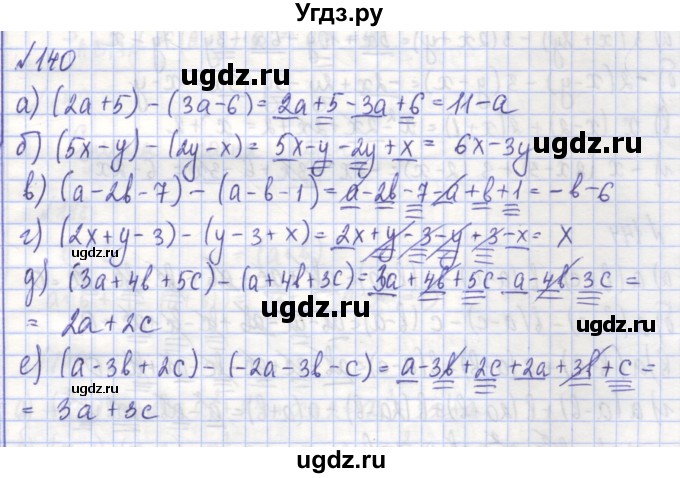 Угдз.ру
№140
а) (2a+5) - (3a-6) = 2a+5-3a+6 = 11-a
б) (5x-y) - (2y-x) = 5x-y-2y+x = 6x-3y
в) (a-2b-7) - (a-b-1) = a-2b-7-a+b+1 = -b-6
г) (2x+y-3) - (y-3+x) = 2x+y-3-y+3-x = x
д) (3a+4b+5c) - (a+4b+3c) = 3a+4b+5c-a-4b-3c =
= 2a+2c
е) (a-3b+2c) - (-2a-3b-c) = a-3b+2c+2a+3b+c =
= 3a+3c
ugdz.ru
ugdz.ru
ugdz.ru
ugdz.ru
ugdz.ru
ugdz.ru
ugdz.ru
ugdz.ru
ugdz.ru